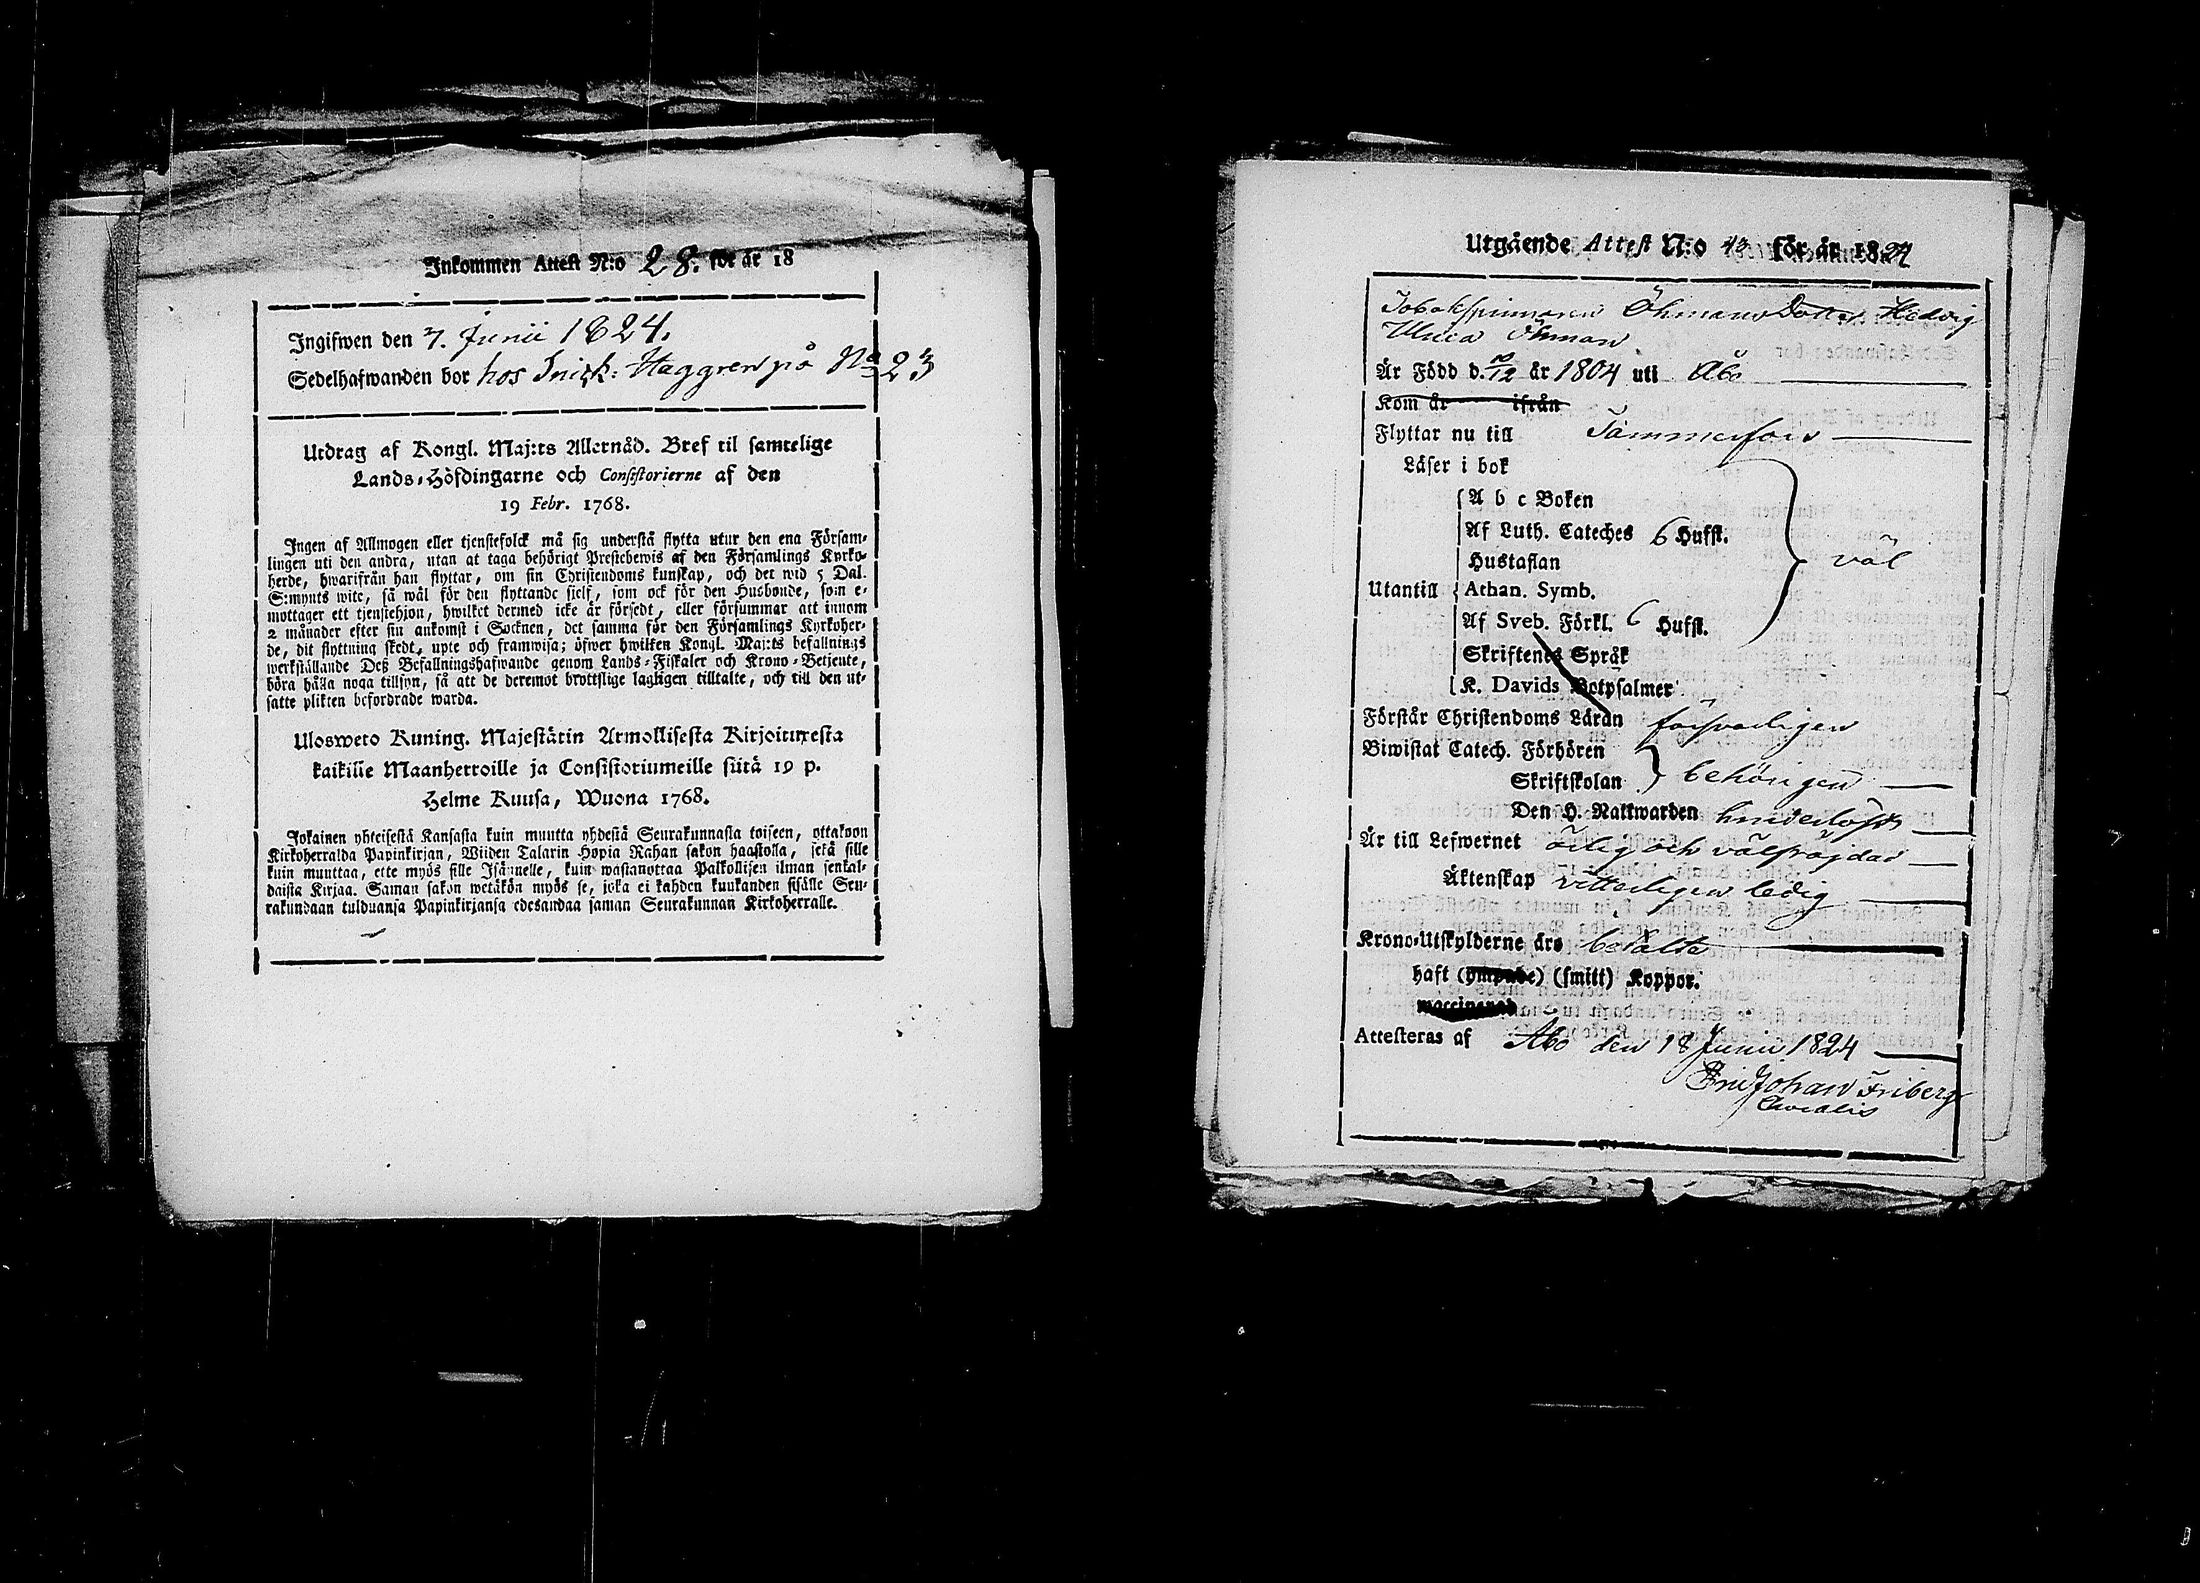 Inkommen Attest N:o 28. för år 18
Ingifwen den 7. Junii 1824.
Sedelhafwanden bor hos Snick: Haggren på No 23
Utdrag af Kongl. Maj:ts Allernåd. Bref til samtelige
Lands-Höfdingarne och Consistorierne af den
19 Febr. 1768.
Ingen af Allmogen eller tjenstefolck må sig understå flytta utur den ena Försam-
lingen uti den andra, utan at taga behörigt Prestebewis af den Församlings Kyrko-
herde, hwarifrån han flyttar, om sin Christendoms kunskap, och det wid 5 Dal.
S:mynts wite, så wäl för den flyttande sjelf, som ock för den Husbonde, som e-
mottager ett tjenstehjon, hwilket dermed icke är försedt, eller försummar att innom
2 månader efter sin ankomst i Socknen, det samma för den Församlings Kyrkoher-
de, dit flyttning skedt, upte och framwisa; öfwer hwilken Kongl. Maj:ts befallnings
werkställande Deß Befallningshafwande genom Lands-Fiskaler och Krono-Betjente,
böra hålla noga tillsyn, så att de deremot brottslige lagligen tilltalte, och till den ut-
satte plikten befordrade warda.
Ulosweto Kuning. Majestätin Armollisesta Kirjoituxesta
kaikille Maanherroille ja Consistoriumeille siitä 19 p.
Helme Kuusa, Wuona 1768.
Jokainen yhteisestä Kansasta kuin muutta yhdestä Seurakunnasta toiseen, ottakoon
Kirkoherralda Papinkirjan, Wiiden Talarin Hopia Rahan sakon haastolla, sekä sille
kuin muuttaa, ette myös sille Isännelle, kuin wastanottaa Palkollisen ilman senkal-
daista Kirjaa. Saman sakon wetäkön myös se, joka ei kahden kuukanden sisälle Seu-
rakundaan tulduansa Papinkirjansa edesandaa saman Seurakunnan Kirkoherralle.
Utgående Attest N:o 43 för år 1824
Tobakspinnaren Öhmans Dotter Hedvig
Ulrica Öhman
Är Född d. 10/12 år 1804 uti Åbo
Kom år ifrån
Flyttar nu till Tammerfors
Läser i bok
A b c Boken
Af Luth. Cateches 6 Hufst.
Hustaflan
väl
Utantill Athan. Symb.
Af Sveb. Förkl. 6 Hufst.
Skriftenes Språk
K. Davids Botpsalmer
Förstår Christendoms Läran försvarligen
Biwistat Catech. Förhören
Skriftskolan behörigen
Den H. Nattwarden hinderlöst
Är till Lefwernet ärlig och välfräjdad
Äktenskap vitterligen ledig
Krono-Utskylderne äro betalte
haft (ympade) (smitt) Koppor.
waccinerad
Attesteras af Åbo den 18 Junii 1824
Johan Friberg